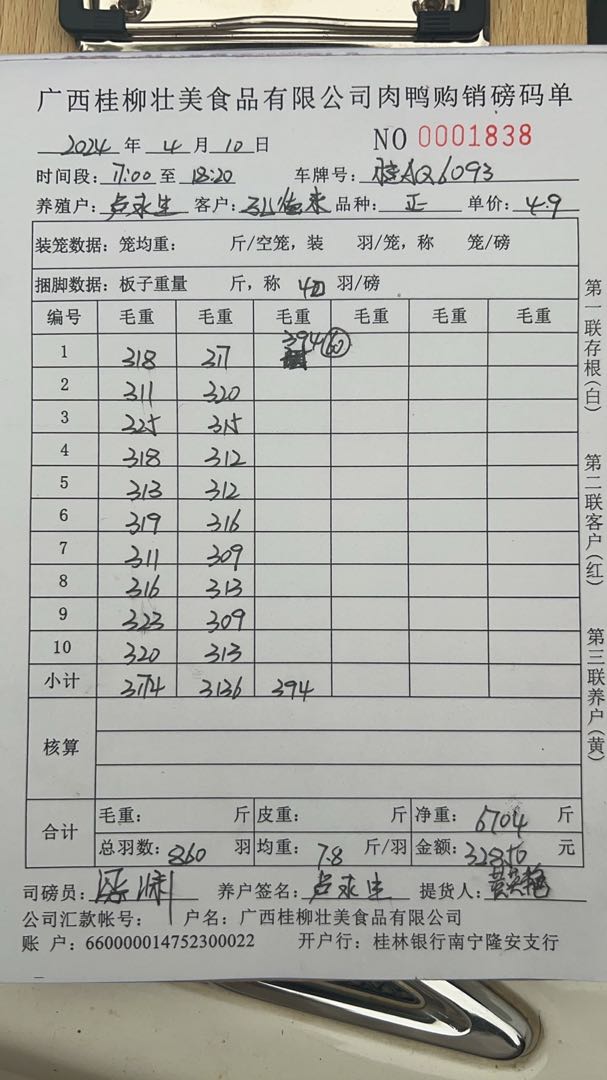 广西桂柳壮美食品有限公司肉鸭购销磅码单
2024 年 4 月 10 日 NO 0001838
时间段: 17:00 至 18:20 车牌号: 桂AQ6093
养殖户: 卢永生 客户: 品种: 正 单价: 4.9
装笼数据: 笼均重: 斤/空笼, 装 羽/笼, 称 笼/磅
捆脚数据: 板子重量 斤, 称 40 羽/磅
编号 毛重 毛重 毛重 毛重 毛重 毛重
1 318 317 394 60
2 311 320
3 325 315
4 318 312
5 313 312
6 319 316
7 311 309
8 316 313
9 323 309
10 320 313
小计 3174 3136 394
核算
合计 毛重: 斤 皮重: 斤 净重: 6704 斤
总羽数: 860 羽 均重: 7.8 斤/羽 金额: 32850 元
司磅员: 养户签名: 卢永生 提货人:
公司汇款帐号: 户名: 广西桂柳壮美食品有限公司
账 户: 660000014752300022 开户行: 桂林银行南宁隆安支行
第一联存根(白)
第二联客户(红)
第三联养户(黄)